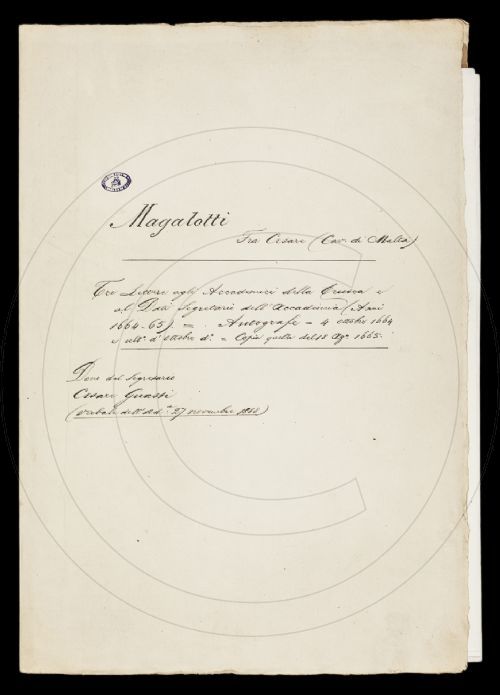 Magalotti
Fra Cesare (Cav. di Malta)
Tre Lettere agli Accademici della Crusca e
al Dati Segretario dell'Accademia (Anni
1664-65) = . Autografe = 4 ottobre 1664
e ult.º d'ottobre d.º = Copia quella del 18 Ag.º 1665.
Dono del Segretario
Cesare Guasti
(verbale dell'ad.ª 27 novembre 1888)